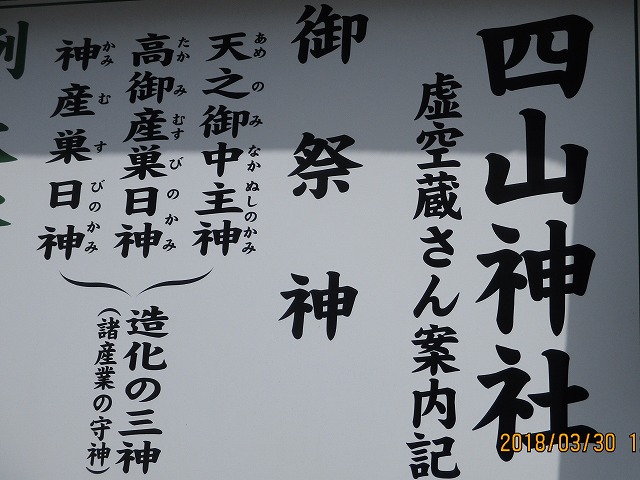 四山神社
虚空蔵さん案内記
御祭神
天之御中主神
あめのみなかぬしのかみ
高御産巣日神
たかみむすびのかみ
神産巣日神
かみむすびのかみ
造化の三神
(諸産業の守神)
2018/03/30 1